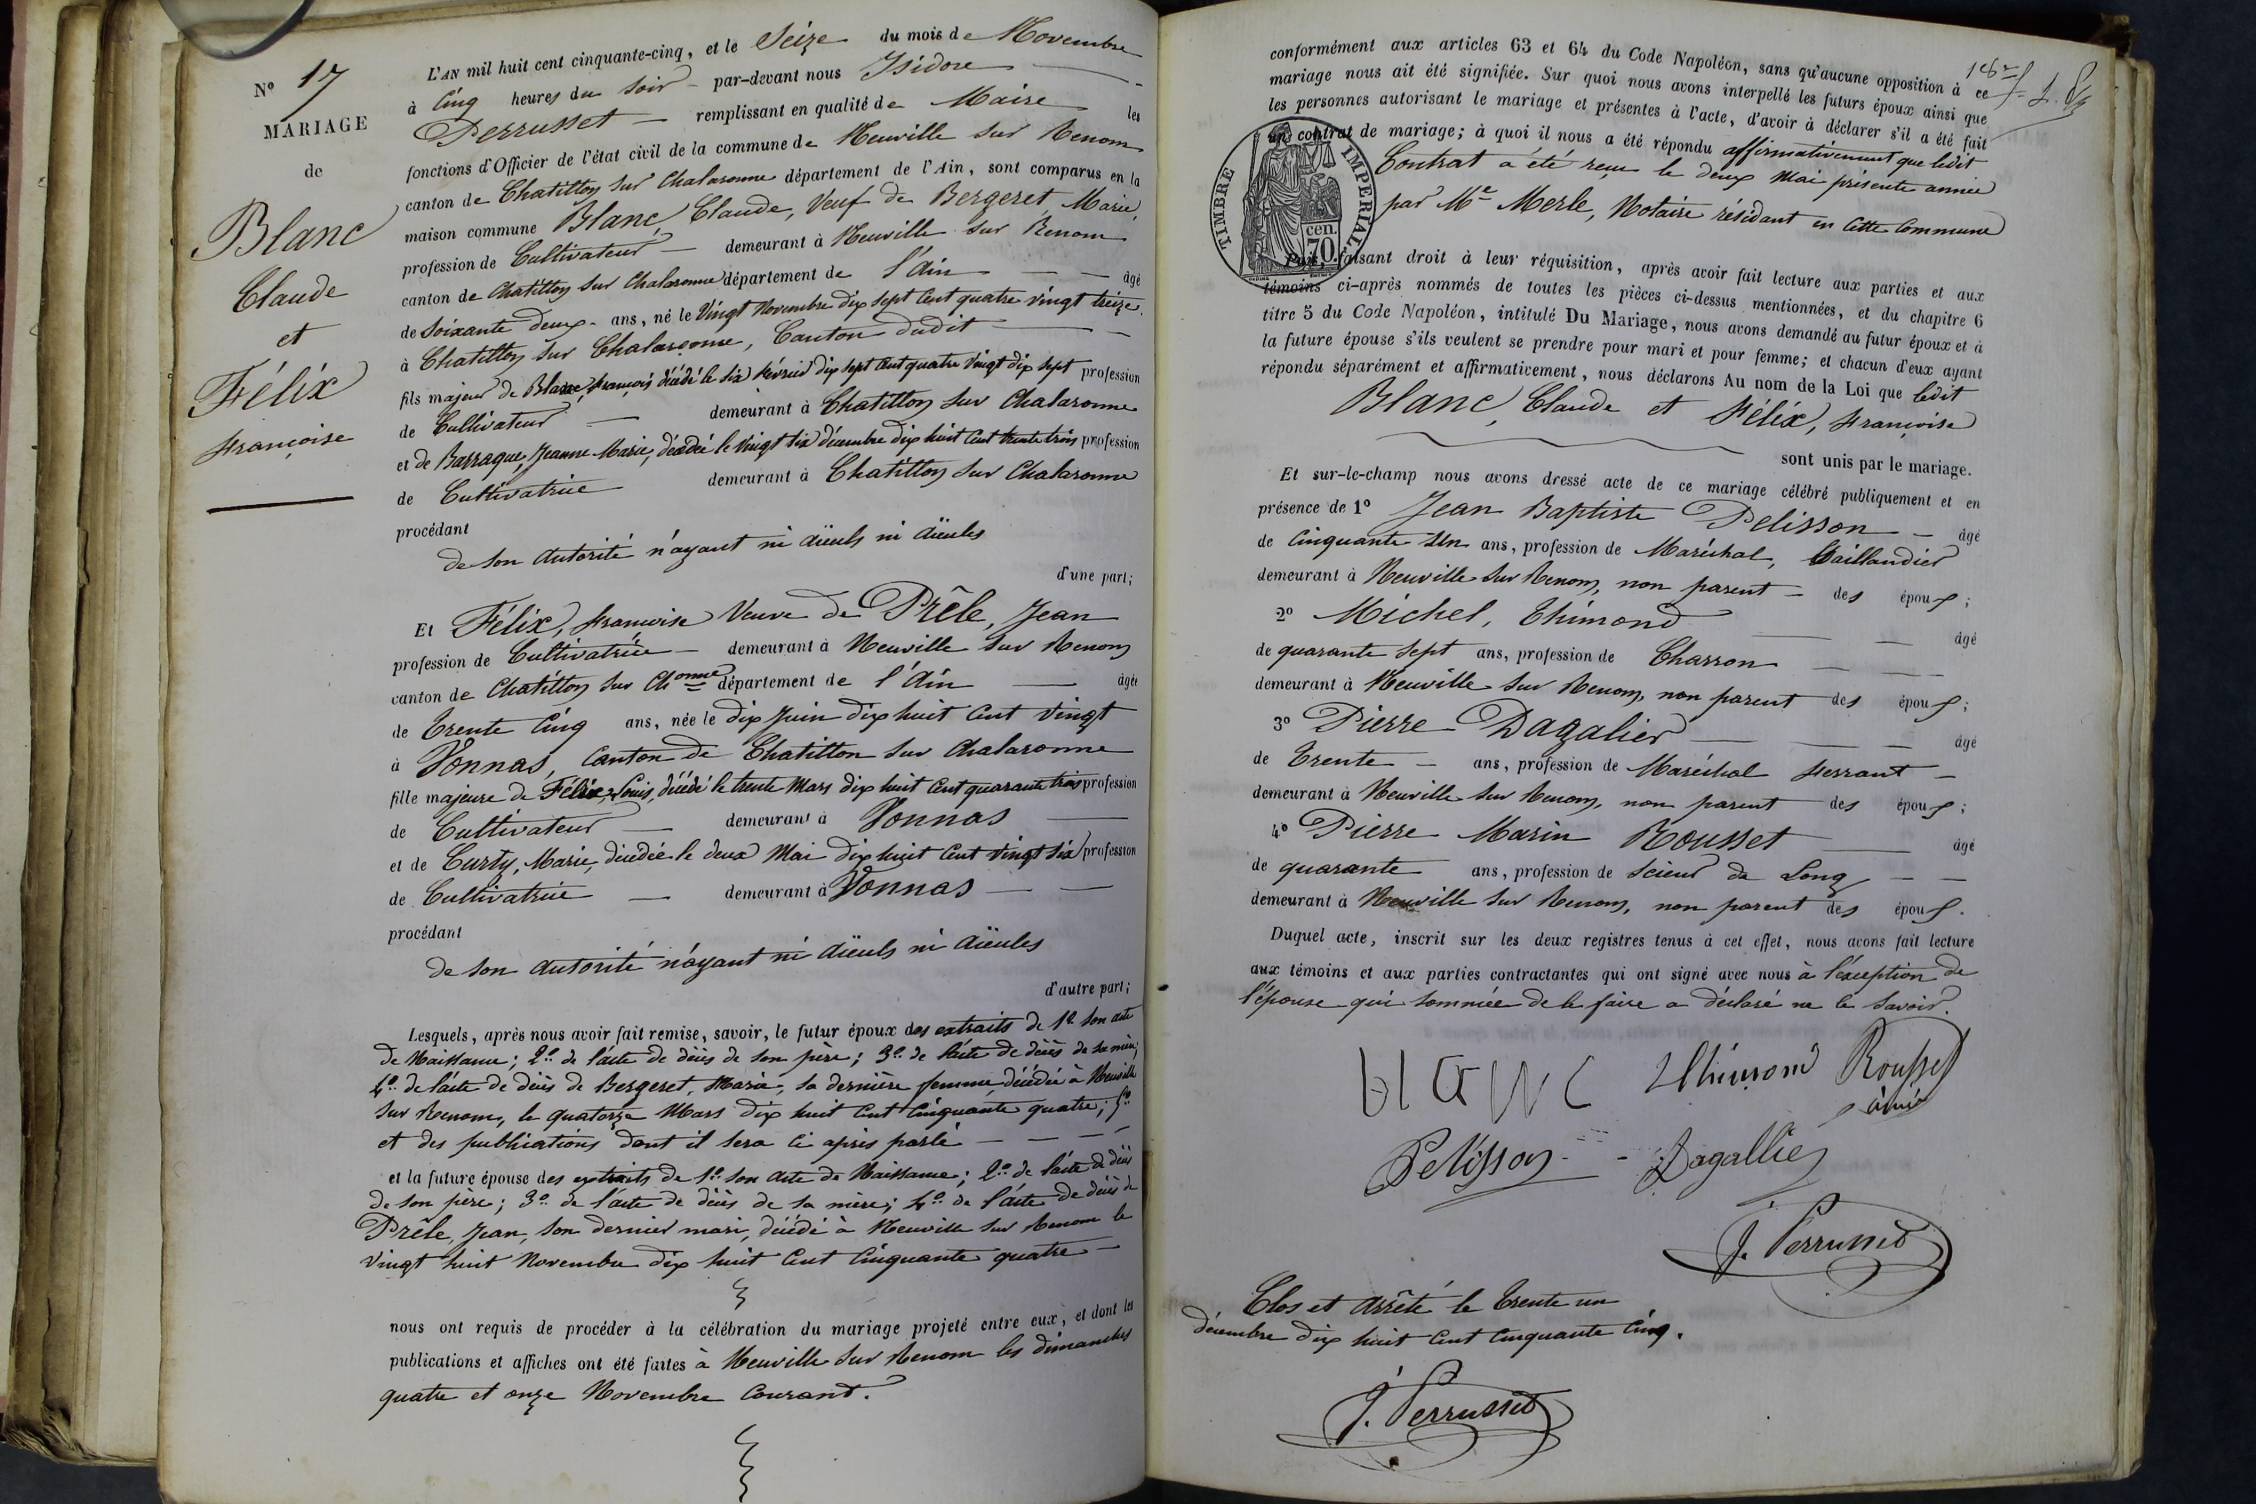 N° 17
MARIAGE
de
Blanc
Claude
et
Félix
Françoise
L'AN mil huit cent cinquante-cinq, et le Seize du mois de Novembre
à Cinq heures du Soir par-devant nous Isidore
Perrusset remplissant en qualité de Maire les
fonctions d'Officier de l'état civil de la commune de Neuville sur Renom
canton de Chatillon sur Chalaronne département de l'Ain, sont comparus en la
maison commune Blanc, Claude, Veuf de Bergeret Marie,
profession de Cultivateur demeurant à Neuville sur Renom
canton de Chatillon sur Chalaronne département de l'Ain âgé
de Soixante deux ans, né le Vingt Novembre dix sept Cent quatre vingt treize
à Chatillon sur Chalaronne, Canton dudit
fils majeur de Blanc, françois décédé le six février dix sept Cent quatre Vingt dix sept profession
de Cultivateur demeurant à Chatillon sur Chalaronne
et de Barraque, Jeanne Marie, décédée le Vingt Six décembre dix huit Cent trente trois profession
de Cultivatrice demeurant à Chatillon sur Chalaronne
procédant
de son autorité n'ayant ni aïeuls ni aïeules
d'une part;
Et Félix, françoise Veuve de Prêle, Jean
profession de Cultivatrice demeurant à Neuville sur Renom
canton de Chatillon sur Chonne département de l'Ain âgée
de Trente Cinq ans, née le dix Juin dix huit Cent Vingt
à Vonnas, Canton de Chatillon sur Chalaronne
fille majeure de Félix, Louis, décédé le trente Mars dix huit Cent quarante trois profession
de Cultivateur demeurant à Vonnas
et de Curty, Marie, décédée le deux Mai dix huit Cent Vingt Six profession
de Cultivatrice demeurant à Vonnas
procédant
de son autorité n'ayant ni aïeuls ni aïeules
d'autre part;
Lesquels, après nous avoir fait remise, savoir, le futur époux des extraits de 1° son acte
de Naissance; 2° de l'acte de décès de son père; 3° de l'acte de décès de sa mère;
4° de l'acte de décès de Bergeret, Marie, sa dernière femme décédée à Neuville
sur Renom, le quatorze Mars dix huit Cent Cinquante quatre; 5°
et des publications dont il sera ci après parlé
et la future épouse des extraits de 1° son acte de Naissance; 2° de l'acte de décès
de son père; 3° de l'acte de décès de sa mère; 4° de l'acte de décès de
Prêle, Jean, son dernier mari, décédé à Neuville sur Renom le
Vingt huit Novembre dix huit Cent Cinquante quatre
nous ont requis de procéder à la célébration du mariage projeté entre eux, et dont les
publications et affiches ont été faites à Neuville sur Renom les dimanches
quatre et onze Novembre Courant.
conformément aux articles 63 et 64 du Code Napoléon, sans qu'aucune opposition à ce
mariage nous ait été signifiée. Sur quoi nous avons interpellé les futurs époux ainsi que
les personnes autorisant le mariage et présentes à l'acte, d'avoir à déclarer s'il a été fait
un contrat de mariage; à quoi il nous a été répondu affirmativement que ledit
Contrat a été reçu le deux Mai présente année
par Me Merle, Notaire résidant en Cette Commune
TIMBRE IMPERIAL
cen.
70.
Puis, faisant droit à leur réquisition, après avoir fait lecture aux parties et aux
témoins ci-après nommés de toutes les pièces ci-dessus mentionnées, et du chapitre 6
titre 5 du Code Napoléon, intitulé Du Mariage, nous avons demandé au futur époux et à
la future épouse s'ils veulent se prendre pour mari et pour femme; et chacun d'eux ayant
répondu séparément et affirmativement, nous déclarons Au nom de la Loi que ledit
Blanc, Claude et Félix, françoise
sont unis par le mariage.
Et sur-le-champ nous avons dressé acte de ce mariage célébré publiquement et en
présence de 1° Jean Baptiste Pelisson âgé
de Cinquante Un ans, profession de Maréchal, taillandier
demeurant à Neuville sur Renom, non parent des époux;
2° Michel, Thimond âgé
de quarante Sept ans, profession de Charron
demeurant à Neuville sur Renom, non parent des époux;
3° Pierre Dagalier âgé
de Trente ans, profession de Maréchal ferrant
demeurant à Neuville sur Renom, non parent des époux;
4° Pierre Marin Rousset âgé
de quarante ans, profession de Scieur de Long
demeurant à Neuville sur Renom, non parent des époux.
Duquel acte, inscrit sur les deux registres tenus à cet effet, nous avons fait lecture
aux témoins et aux parties contractantes qui ont signé avec nous à l'exception de
l'épouse qui sommée de le faire a déclaré ne le savoir.
blanc Thimond Rousset
ainé
Pelisson Dagallier
J. Perrusset
Clos et arrêté le trente un
décembre dix huit Cent Cinquante Cinq.
J. Perrusset